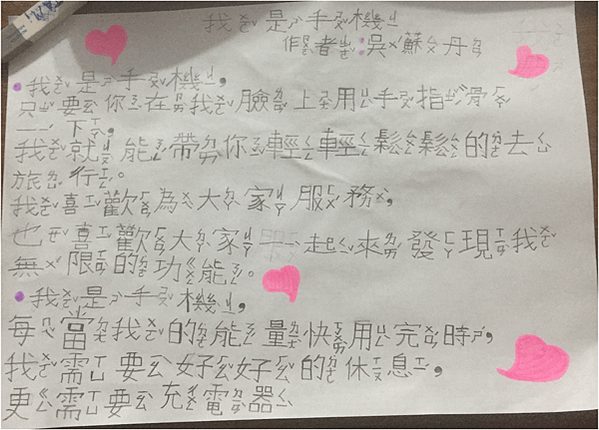 我是手機
作者:吳蘇丹
我是手機,
只要你在我臉上用手指滑
一下,
我就能帶你輕輕鬆鬆的去
旅行。
我喜歡為大家服務,
也喜歡大家一起來發現我
無限的功能。
我是手機,
每當我的能量快用完時,
我需要好好的休息,
更需要充電器